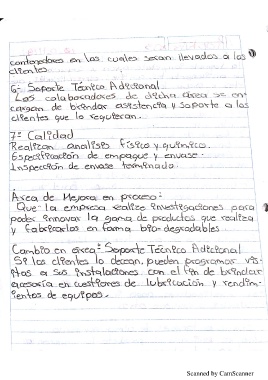 contenedores en las cuales seran llevados a los
clientes.
6- Soporte Técnico Adicional
Los colaboradores de dicha área se en-
cargan de brindar asistencia y soporte a los
clientes que lo requieran.
7- Calidad
Realizan analisis físico y químico.
Especificación de empaque y envase.
Inspección de envase terminado.
Área de Mejora en proceso:
Que la empresa realize investigaciones para
poder innovar la gama de productos que realiza
y fabricarlos en forma bio-degradables.
Cambio en área: Soporte Técnico Adicional
Si los clientes lo decean, pueden programar visi-
tas a sus instalaciones con el fin de brindar
acesoría en cuestiones de lubricación y rendim-
ientos de equipos.
Scanned by CamScanner